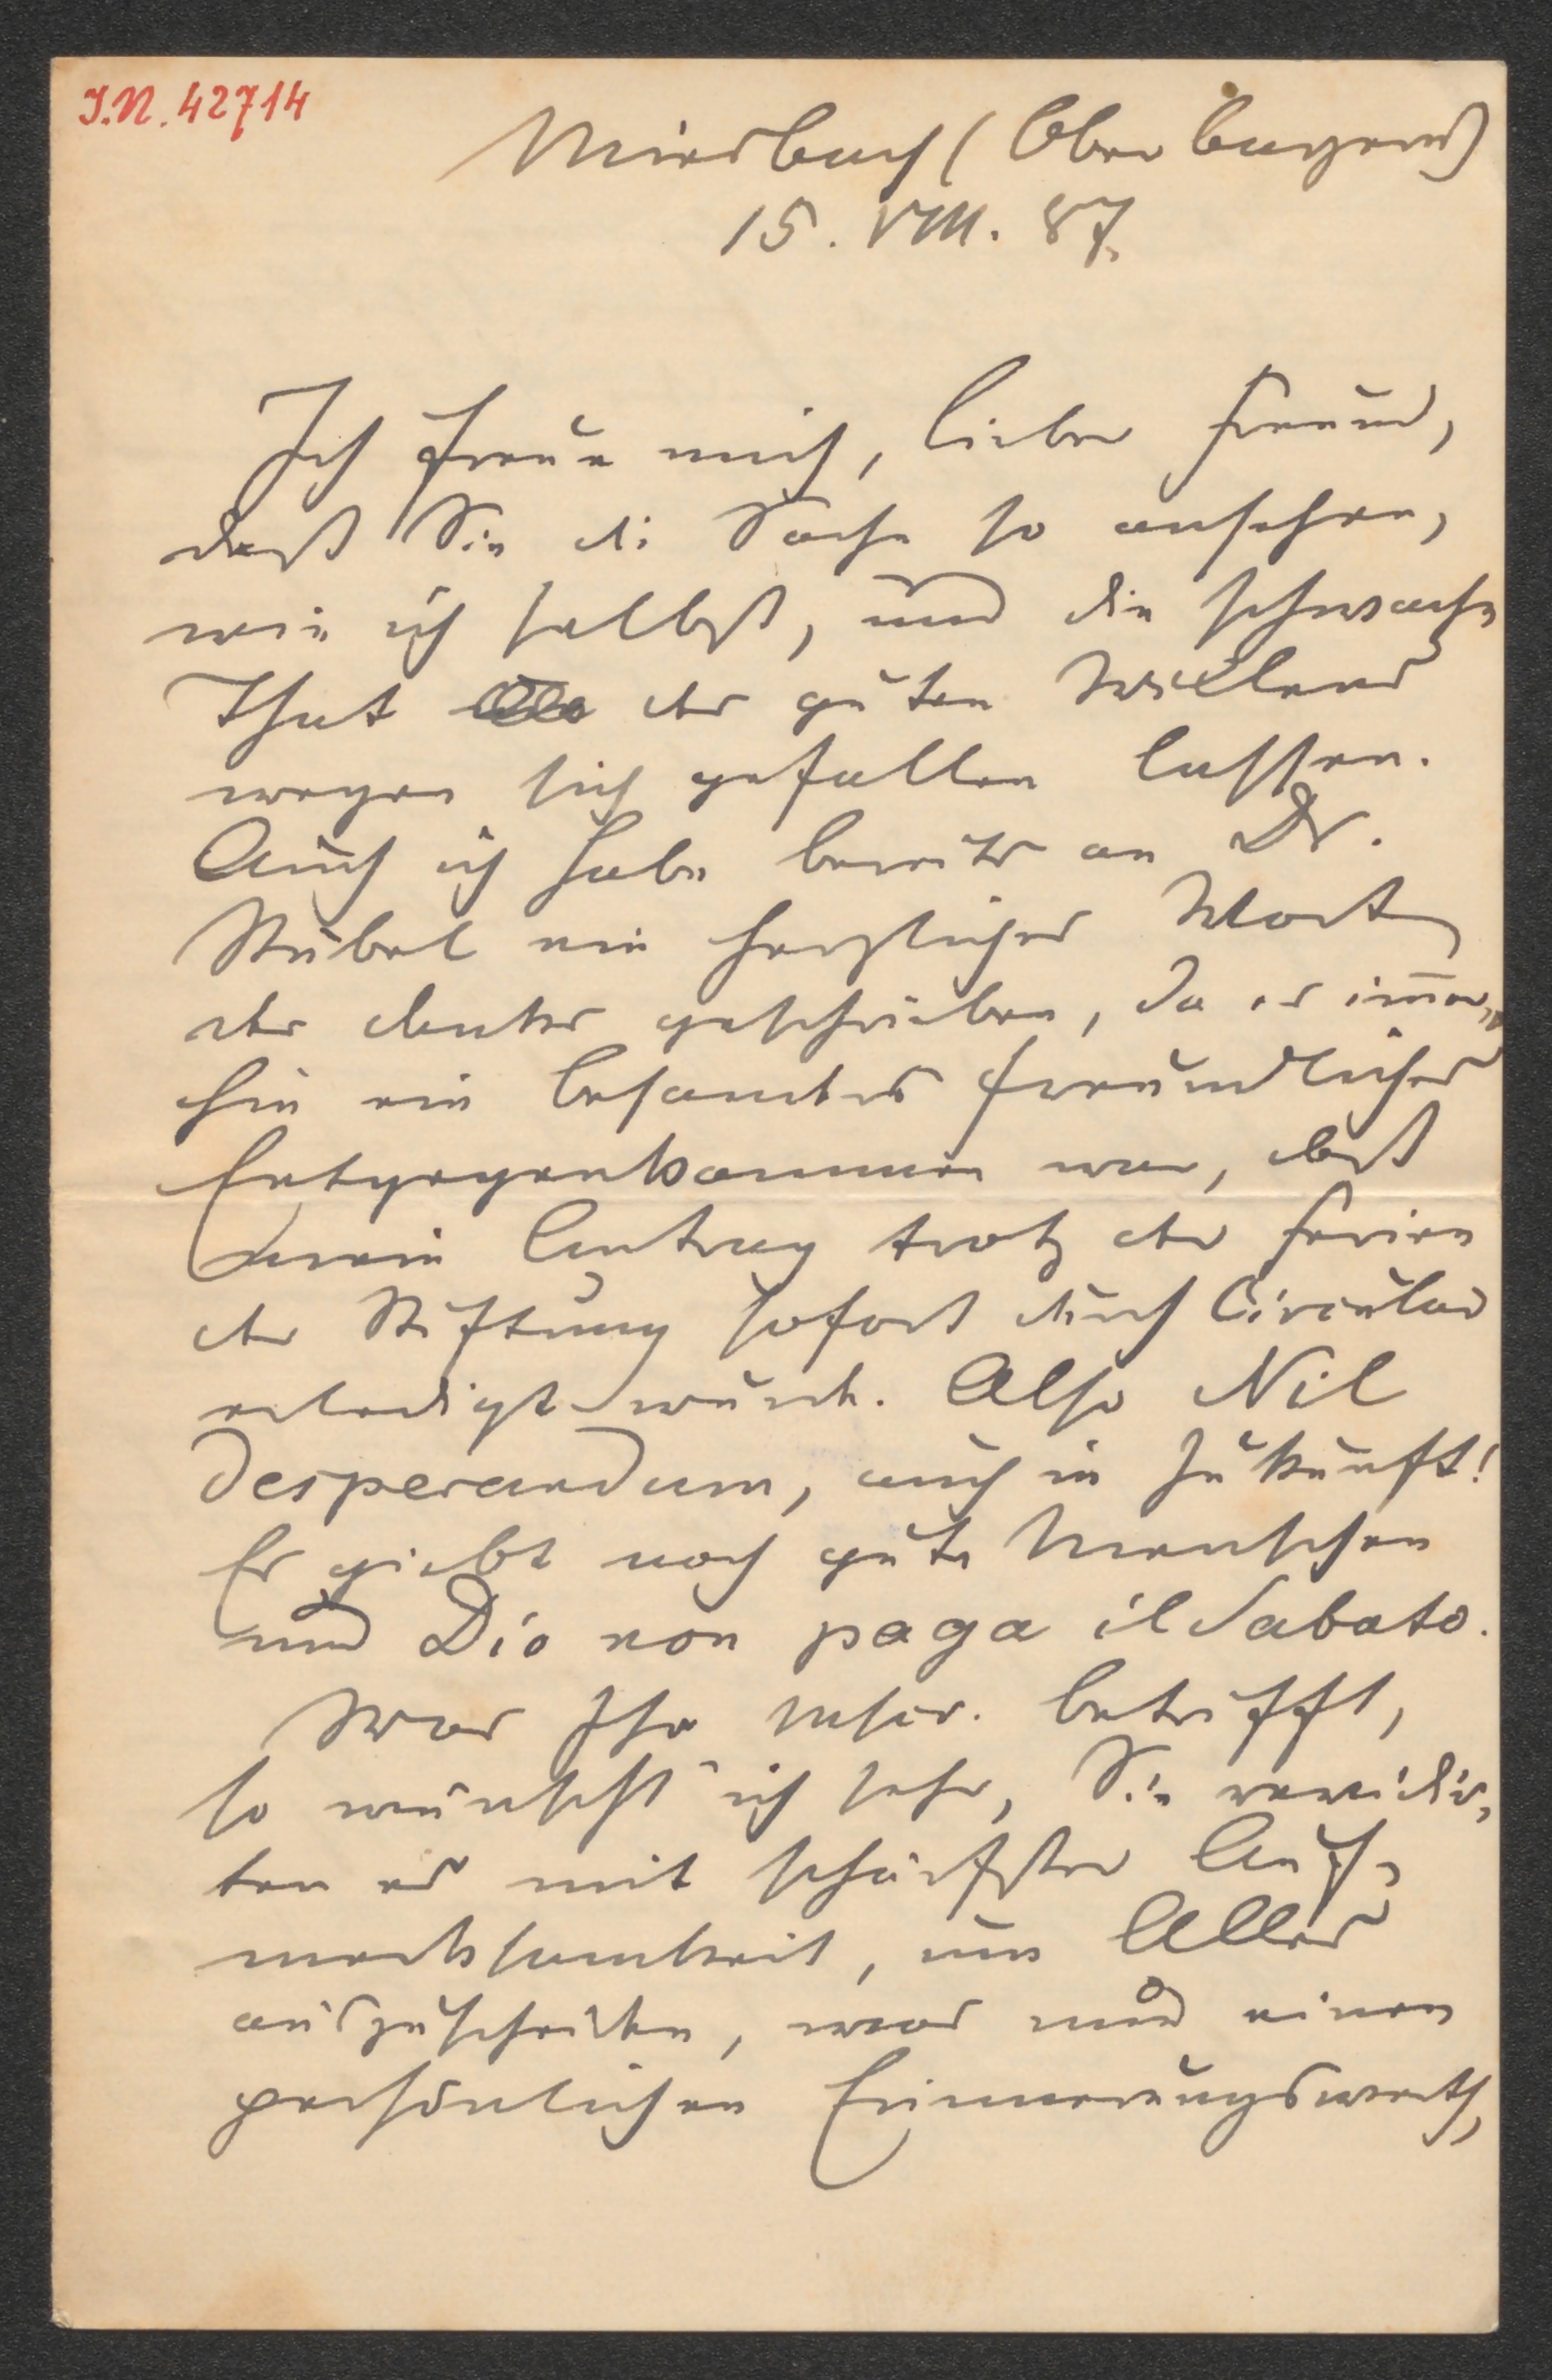 I.N. 42714
Miesbach (Oberbayern)
15. VIII. 87.
Ich freue mich, lieber Freund,
daß Sie die Sache so ansehen,
wie ich selbst, und die schwache
That des guten Willens
wegen sich gefallen lassen.
Auch ich habe bereits an Dr.
Stübel ein herzliches Wort
des Dankes geschrieben, da es immer-
hin ein besonders freundliches
Entgegenkommen war, daß
mein Antrag trotz der Ferien
der Stiftung sofort durch Circular
erledigt wurde. Also Nil
desperandum, auch in Zukunft!
Es giebt noch gute Menschen
und Dio non paga il Sabato.
Was Ihr Mscr. betrifft,
so wünscht' ich sehr, Sie revidir-
ten es mit schärfster Auf-
merksamkeit, um Alles
auszuscheiden, was nur einen
persönlichen Erinnerungswerth,